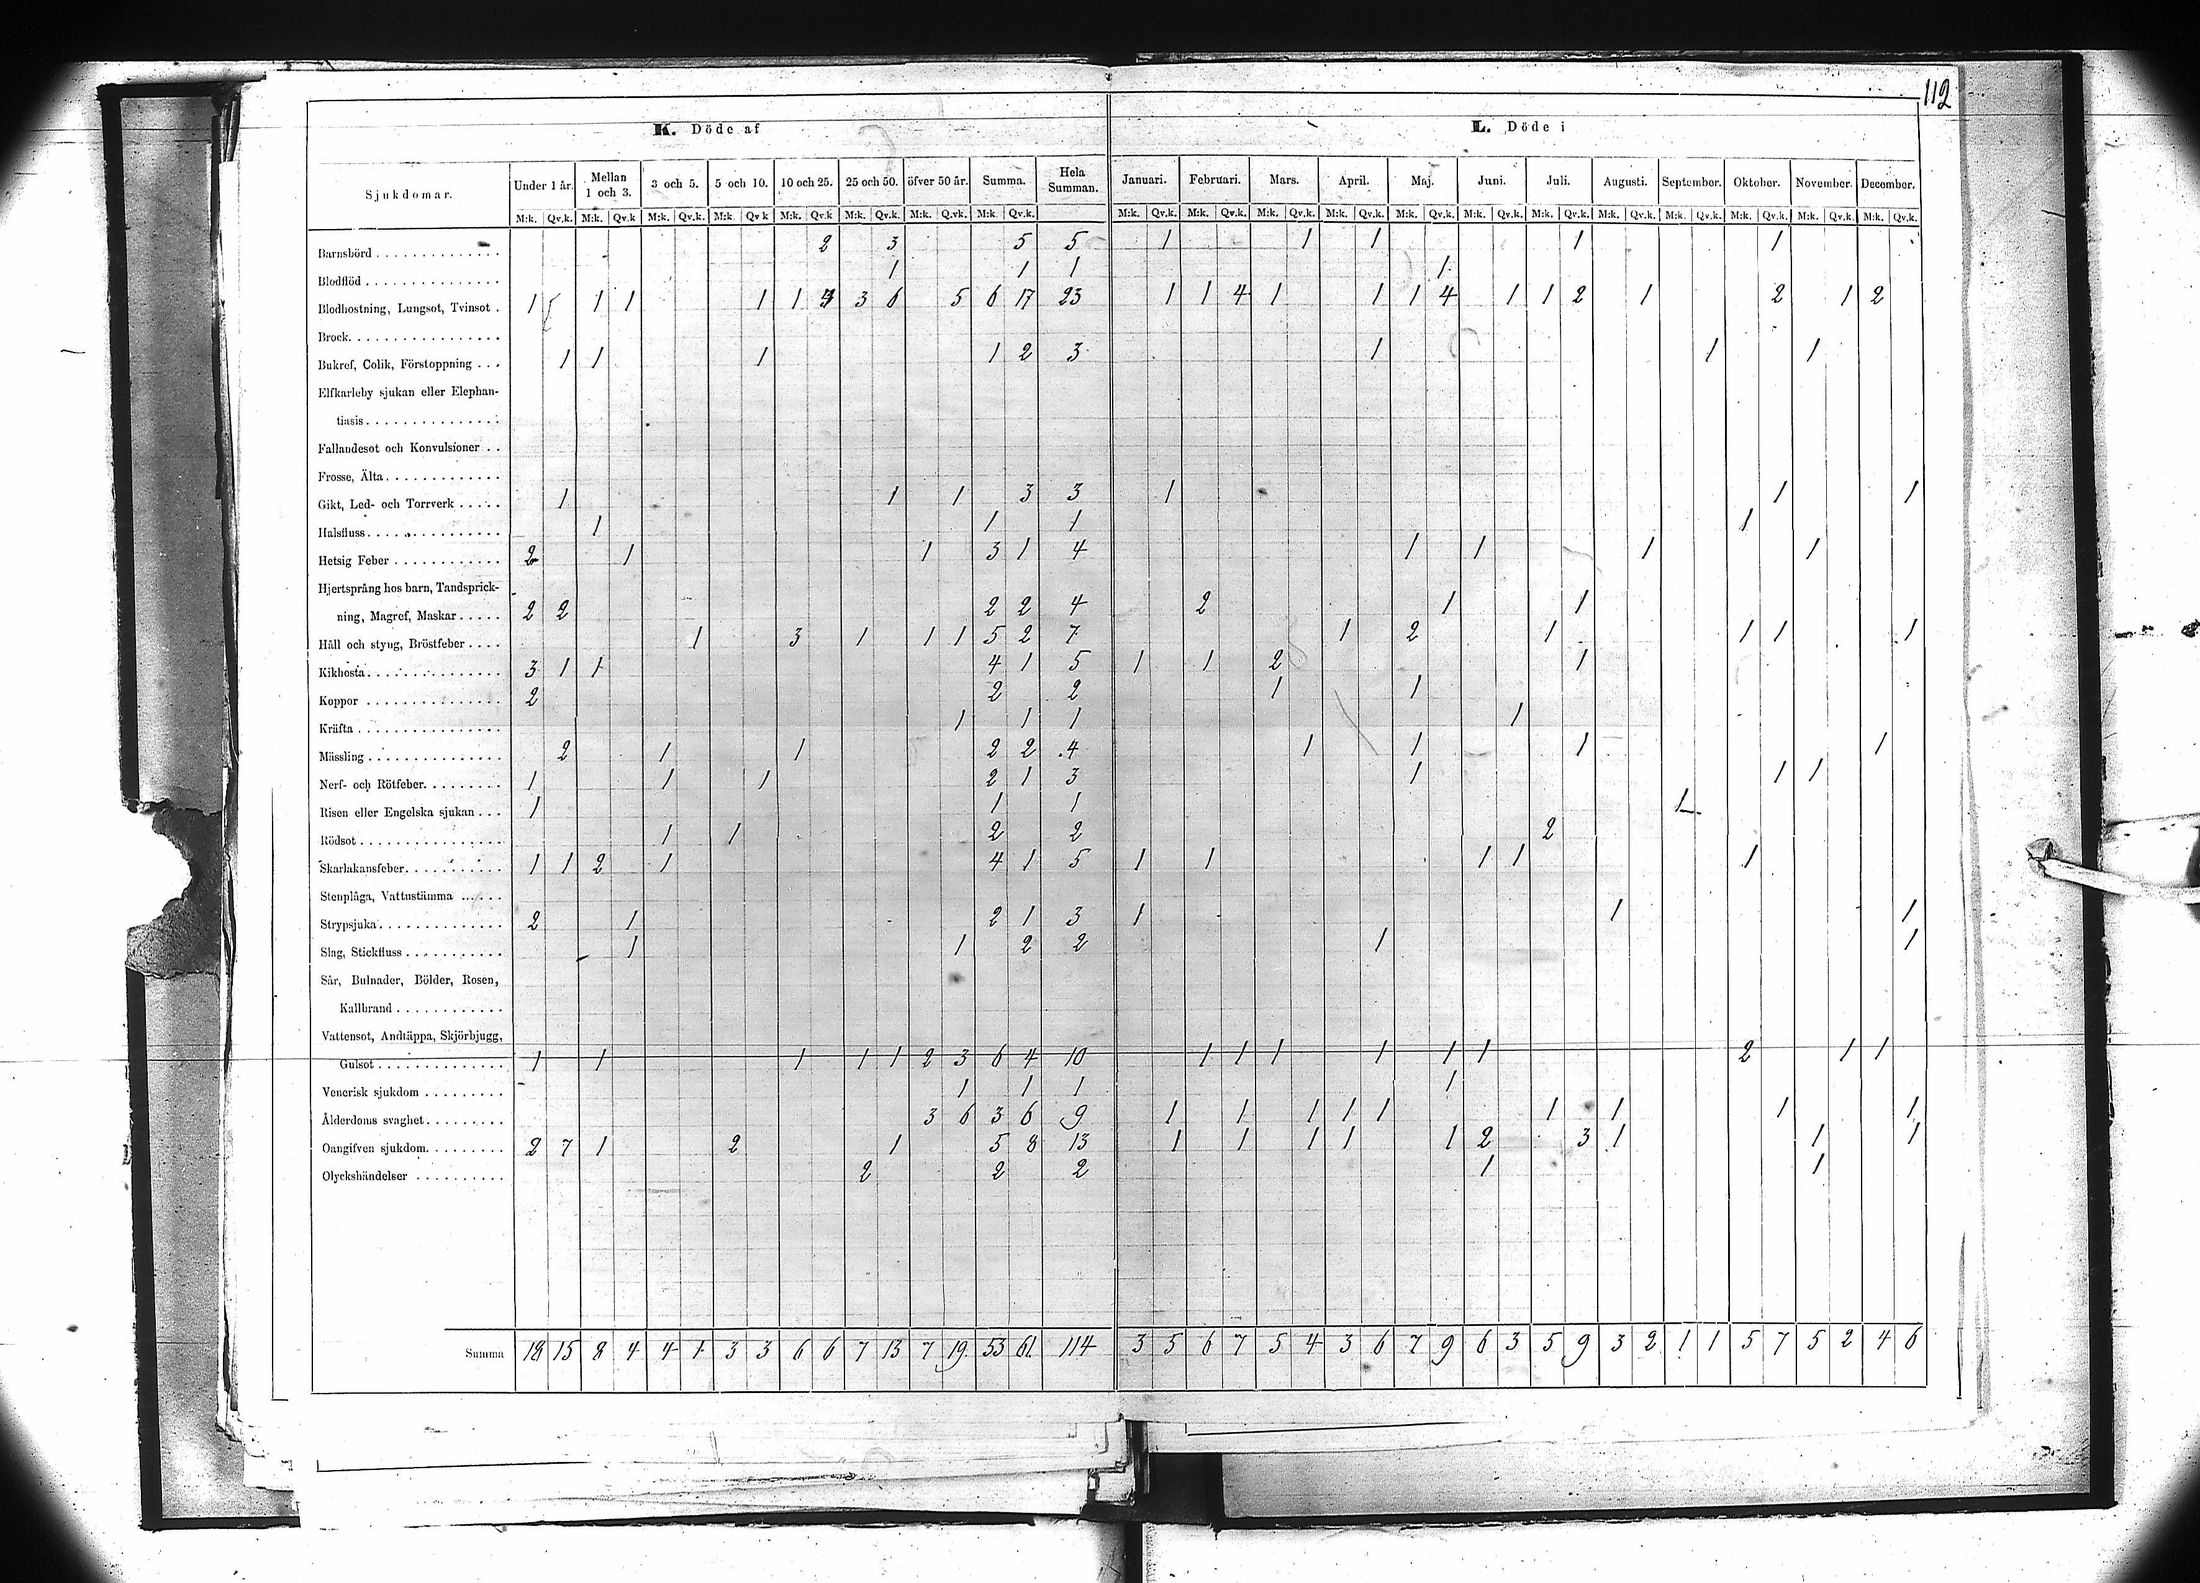 112
K. Döde af
L. Döde i
Sjukdomar. Under 1 år. Mellan 1 och 3. 3 och 5. 5 och 10. 10 och 25. 25 och 50. öfver 50 år. Summa. Hela Summan. Januari. Februari. Mars. April. Maj. Juni. Juli. Augusti. September. Oktober. November. December.
M:k. Qv.k. M:k. Qv.k M:k. Qv.k. M:k. Qv k M:k. Qv.k M:k. Qv.k. M:k. Q.vk. M:k. Qv.k. M:k. Qv.k. M:k. Qv.k. M:k. Qv.k. M:k. Qv.k. M:k. Qv.k. M:k. Qv.k. M:k. Qv.k. M:k. Qv.k. M:k. Qv.k. M:k. Qv.k. M:k. Qv.k. M:k. Qv.k.
Barnsbörd 2 3 5 5 1 1 1 1 1
Blodflöd 1 1 1 1
Blodhostning, Lungsot, Tvinsot . 1 1 1 1 1 3 3 6 5 6 17 23 1 1 4 1 1 1 4 1 1 2 1 2 1 2
Brock
Bukref, Colik, Förstoppning . . . 1 1 1 1 2 3 1 1 1
Elfkarleby sjukan eller Elephan-
tiasis
Fallandesot och Konvulsioner . .
Frosse, Älta
Gikt, Led- och Torrverk 1 1 1 3 3 1 1 1
Halsfluss 1 1 1 1
Hetsig Feber 2 1 1 3 1 4 1 1 1 1
Hjertsprång hos barn, Tandsprick-
ning, Magref, Maskar 2 2 2 2 4 2 1 1
Håll och styng, Bröstfeber 1 3 1 1 1 5 2 7 1 2 1 1 1 1
Kikhosta 3 1 1 4 1 5 1 1 2 1
Koppor 2 2 2 1 1
Kräfta 1 1 1 1
Mässling 2 1 1 2 2 4 1 1 1 1
Nerf- och Rötfeber 1 1 1 2 1 3 1 1 1
Risen eller Engelska sjukan . . . 1 1 1 1
Rödsot 1 1 2 2 2
Skarlakansfeber 1 1 2 1 4 1 5 1 1 1 1 1
Stenplåga, Vattustämma
Strypsjuka 2 1 2 1 3 1 1 1
Slag, Stickfluss 1 1 2 2 1 1
Sår, Bulnader, Bölder, Rosen,
Kallbrand
Vattensot, Andtäppa, Skjörbjugg,
Gulsot 1 1 1 1 1 2 3 6 4 10 1 1 1 1 1 1 2 1 1
Venerisk sjukdom 1 1 1 1
Ålderdoms svaghet 3 6 3 6 9 1 1 1 1 1 1 1 1 1
Oangifven sjukdom 2 7 1 2 1 5 8 13 1 1 1 1 1 2 3 1 1 1
Olyckshändelser 2 2 2 1 1
Summa 18 15 8 4 4 1 3 3 6 6 7 13 7 19 53 61 114 3 5 6 7 5 4 3 6 7 9 6 3 5 9 3 2 1 1 5 7 5 2 4 6